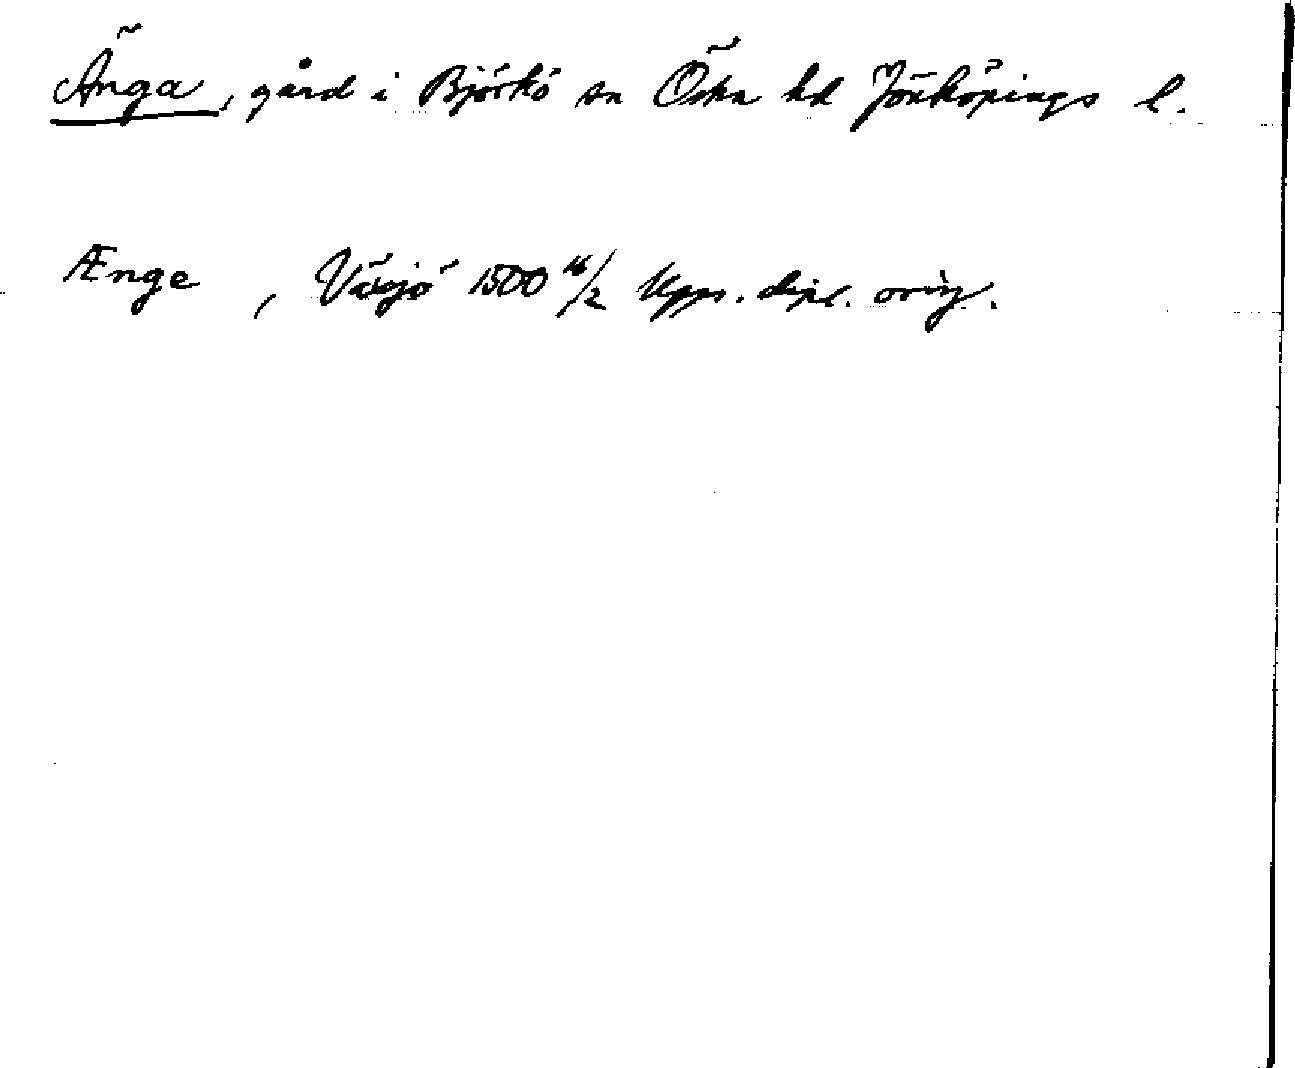 Änga, gård i Björkö sn Östra hd Jönköpings l.
Ænge, Växjö 1500 /2 Upps. dipl. orig.